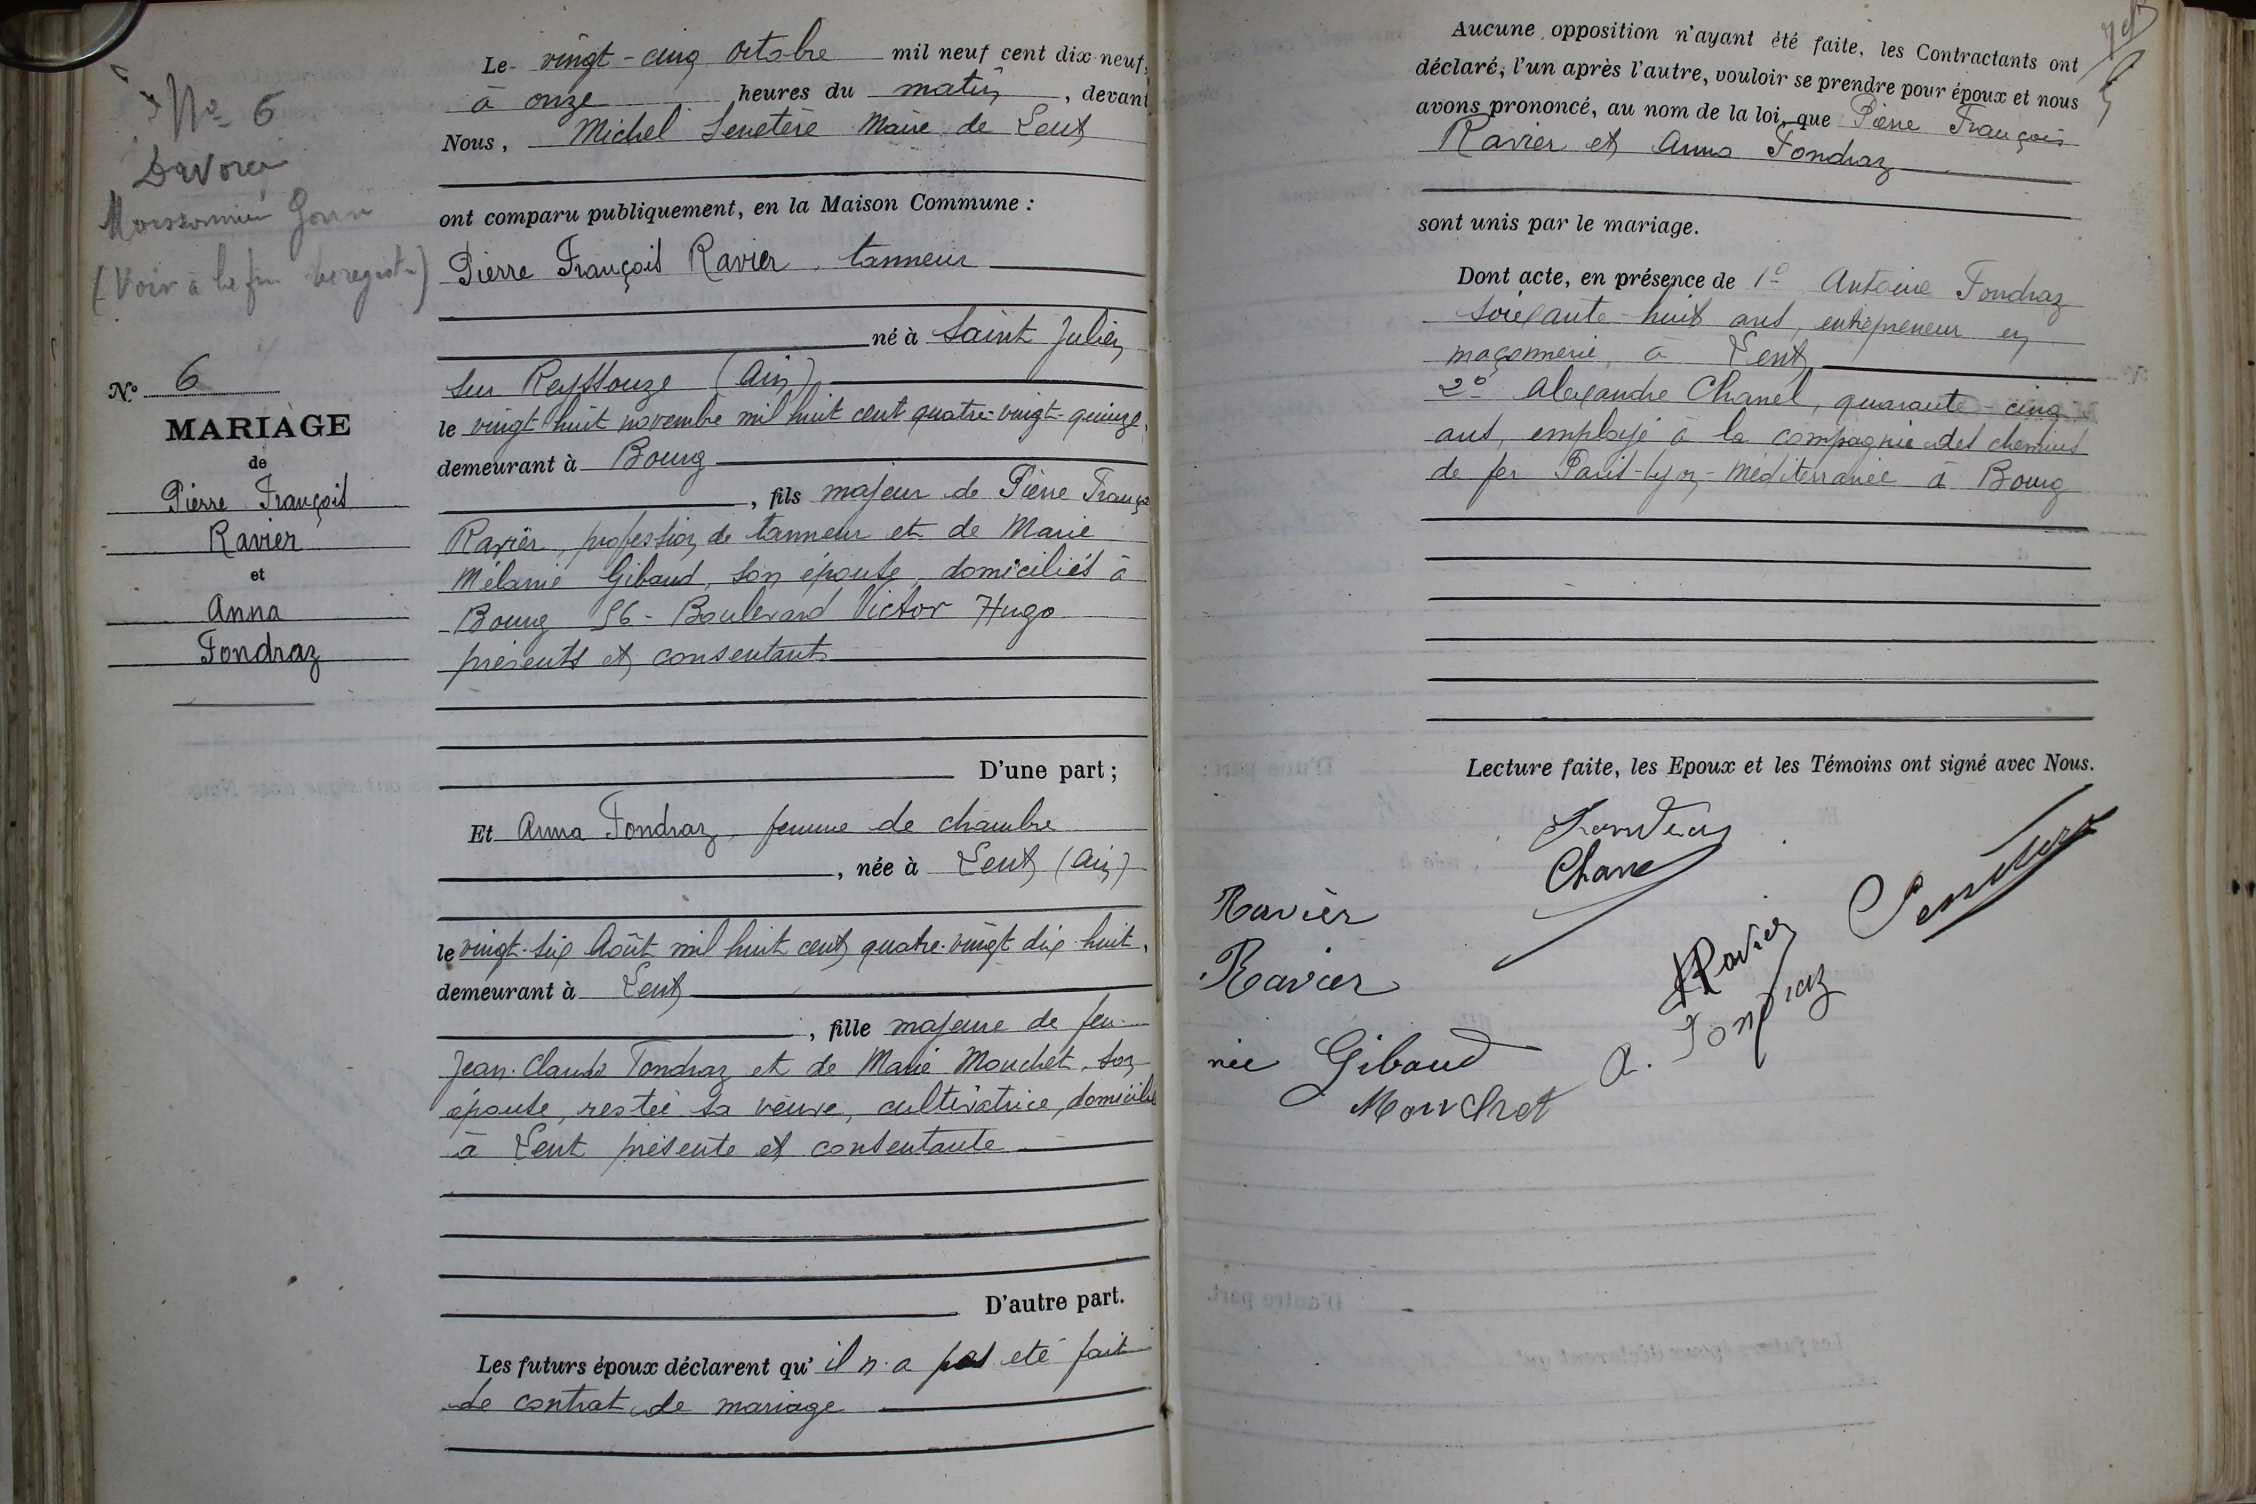 Nº 6
(Voir à la fin
Nº 6
MARIAGE
de
Pierre François
Ravier
et
Anna
Fondraz
Le vingt-cinq octobre mil neuf cent dix-neuf,
à onze heures du matin, devant
Nous, Michel Senetère Maire de Lent
ont comparu publiquement, en la Maison Commune :
Pierre François Ravier, tanneur
né à Saint Julien
sur Reyssouze (Ain)
le vingt-huit novembre mil huit cent quatre-vingt-quinze,
demeurant à Bourg
, fils majeur de Pierre Franço
Ravier, profession de tanneur et de Marie
Mélanie Gibaud, son épouse, domiciliés à
Bourg 56 - Boulevard Victor Hugo
présents et consentants
D'une part ;
Et Anna Fondraz, femme de chambre
, née à Lent (Ain)
le vingt-six Août mil huit cent quatre-vingt dix-huit,
demeurant à Lent
, fille majeure de feu
Jean-Claude Fondraz et de Marie Mouchet, son
épouse, restée sa veuve, cultivatrice, domiciliée
à Lent présente et consentante
D'autre part.
Les futurs époux déclarent qu' il n'a pas été fait
de contrat de mariage
Aucune opposition n'ayant été faite, les Contractants ont
déclaré, l'un après l'autre, vouloir se prendre pour époux et nous
avons prononcé, au nom de la loi, que Pierre François
Ravier et Anna Fondraz
sont unis par le mariage.
Dont acte, en présence de 1º Antoine Fondraz
soixante-huit ans, entrepreneur en
maçonnerie, à Lent
2º Alexandre Chanel, quarante-cinq
ans, employé à la compagnie des chemins
de fer Paris-Lyon-Méditerranée à Bourg
Lecture faite, les Epoux et les Témoins ont signé avec Nous.
Chanel
Ravier
Ravier
Ravier
née Gibaud
A. Fondraz
Mouchet